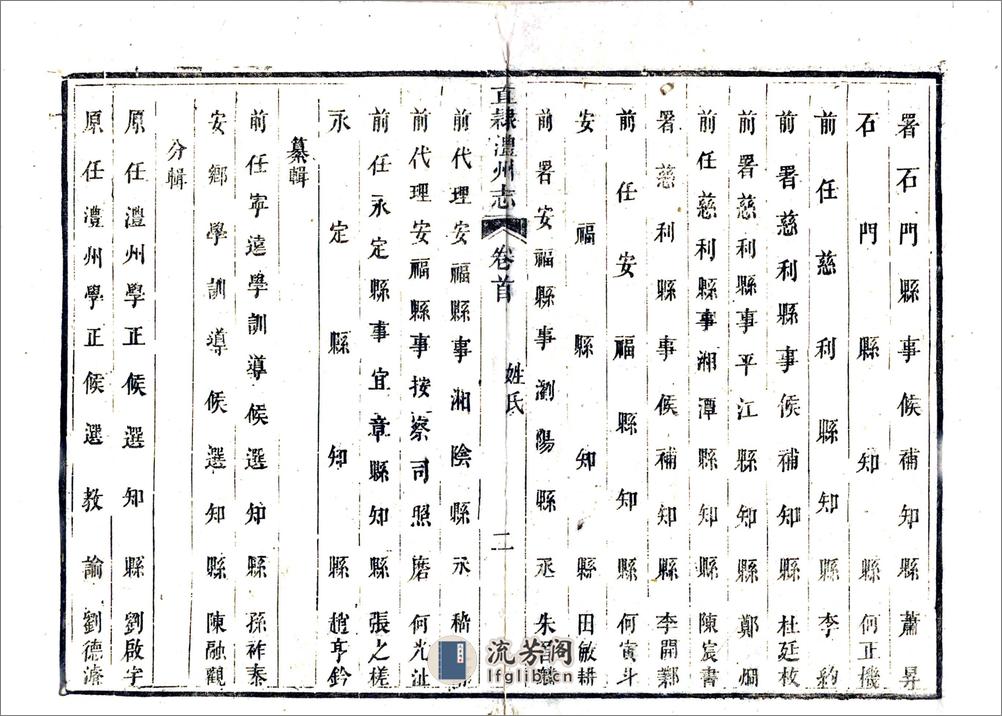 署石門縣事候補知縣蕭昇
石門縣知縣何正機
前任慈利縣知縣李約
前署慈利縣事候補知縣杜廷枚
前署慈利縣事平江縣知縣鄭烱
前任慈利縣事湘潭縣知縣陳宸書
署慈利縣事候補知縣李開鄴
前任安福縣知縣何寅斗
安福縣知縣田敏耕
前署安福縣事瀏陽縣丞朱
直隸澧州志
卷首
姓氏
二
前代理安福縣事湘陰縣丞嵇
前代理安福縣事按察司照磨何光沚
前任永定縣事宜章縣知縣張之槎
永定縣知縣趙亨鈐
纂輯
前任寧遠學訓導候選知縣孫祚泰
安鄉學訓導候選知縣陳融觀
分輯
原任澧州學正候選知縣劉啟宇
原任澧州學正候選教諭劉德濂
流芳閣
lfglib.cn